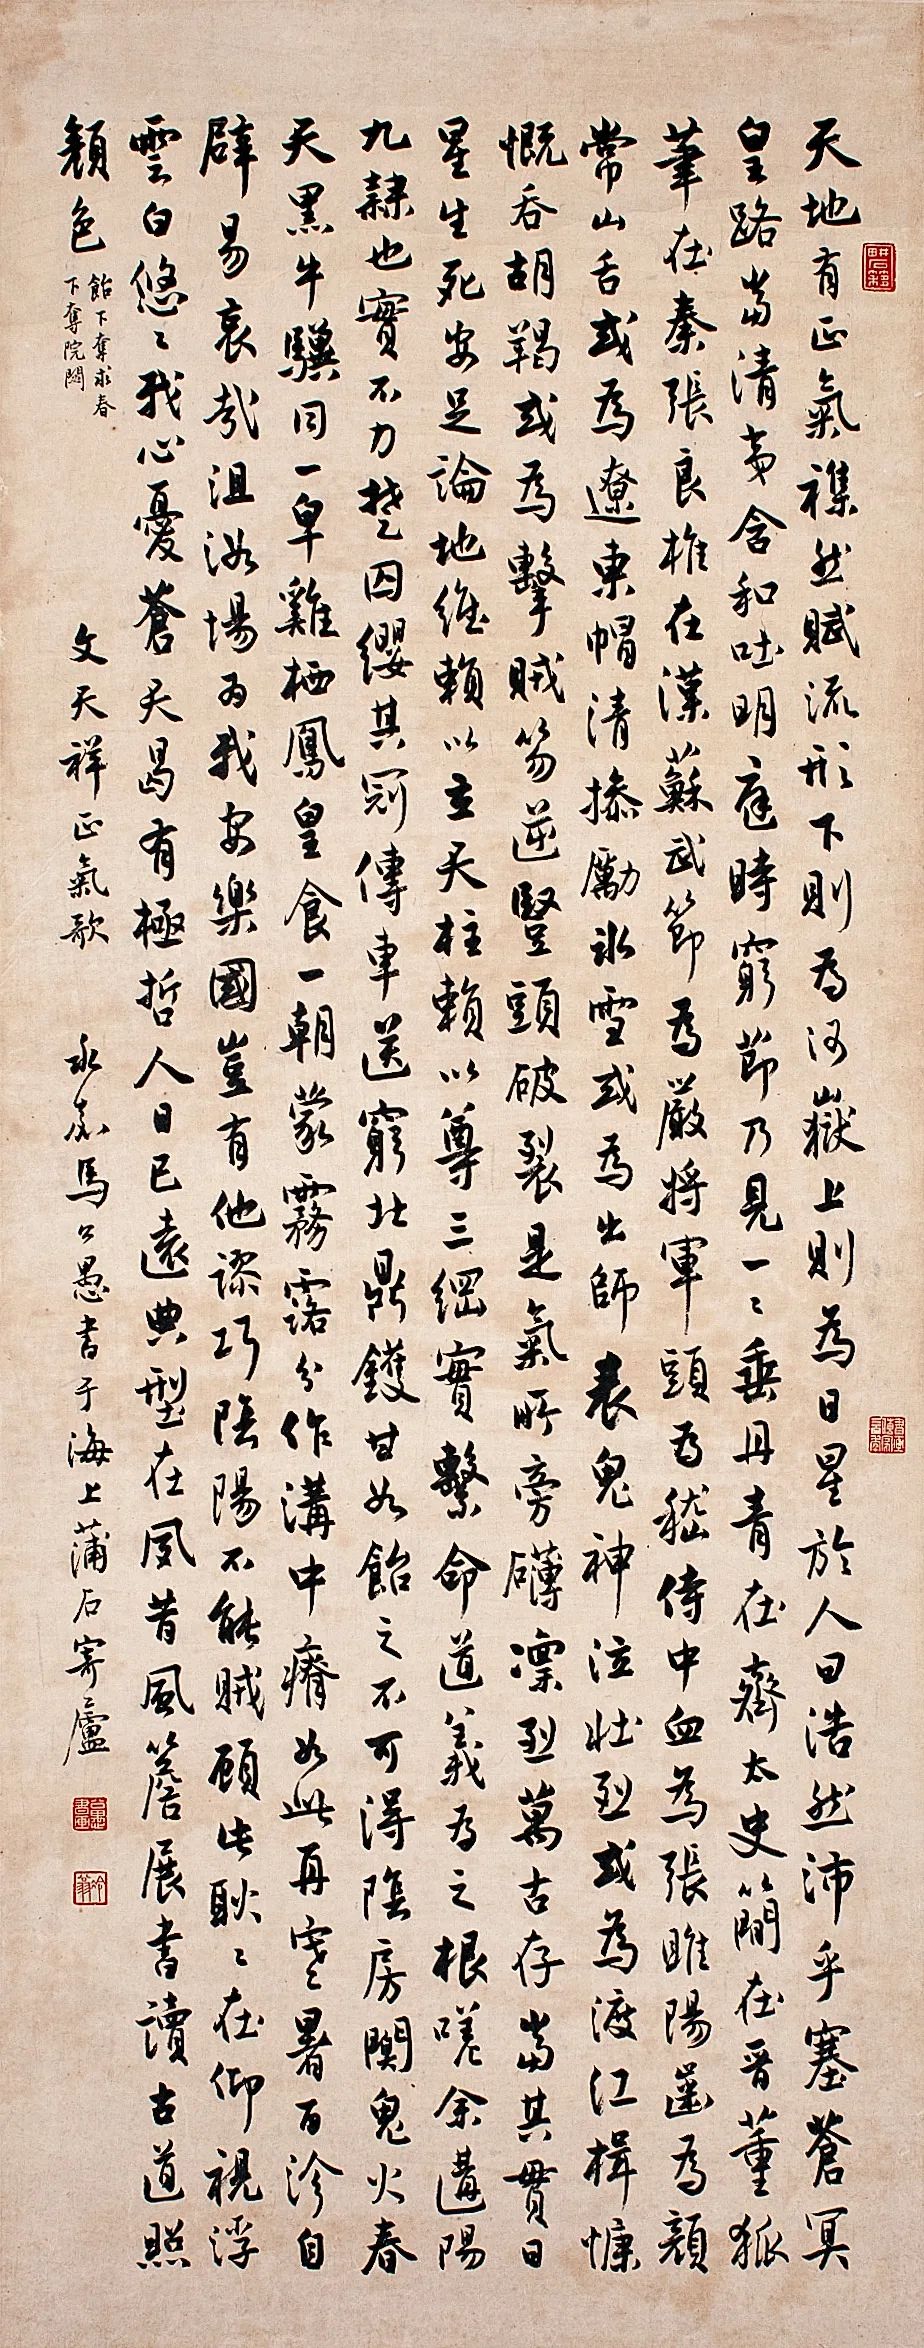 天地有正氣襍然賦流形下則為河嶽上則為日星於人曰浩然沛乎塞蒼冥
皇路當清夷含和吐明庭時窮節乃見一〻垂丹青在齊太史簡在晉董狐
筆在秦張良椎在漢蘇武節為嚴將軍頭為嵇侍中血為張睢陽齒為顏
常山舌或為遼東帽清操勵冰雪或為出師表鬼神泣壯烈或為渡江楫慷
慨吞胡羯或為擊賊笏逆豎頭破裂是氣所旁礴凜烈萬古存當其貫日
星生死安足論地維賴以立天柱賴以尊三綱實繫命道義為之根嗟余遘陽
九隸也實不力楚囚纓其冠傳車送窮北鼎鑊甘如飴之不可得陰房闃鬼火春
天黑牛驥同一皁雞栖鳳皇食一朝蒙霧露分作溝中瘠如此再寒暑百沴自
辟易哀哉沮洳場為我安樂國豈有他謬巧陰陽不能賊顧此耿〻在仰視浮
雲白悠〻我心憂蒼天曷有極哲人日已遠典型在夙昔風簷展書讀古道照
顏色
飴下奪求春
下奪院閟
文天祥正氣歌 永嘉馬公愚書于海上蒲石寄廬
畊石簃